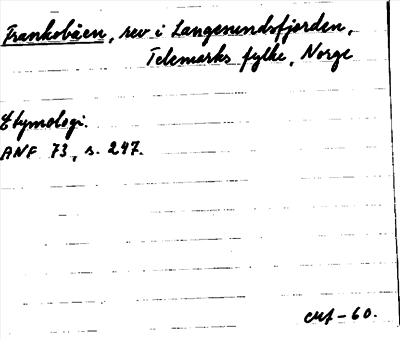 Frankobåen, rev i Langesundsfjorden,
Telemarks fylke, Norge
Etymologi.
ANF 73, s. 247.
-60.